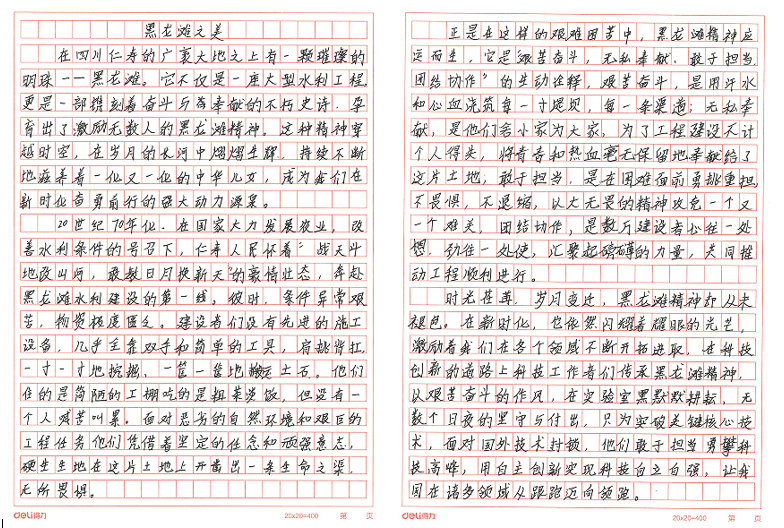 黑龙滩之美
在四川仁寿的广袤大地之上有一颗璀璨的
明珠——黑龙滩。它不仅是一座大型水利工程,
更是一部镌刻着奋斗与奉献的不朽史诗,孕
育出了激励无数人的黑龙滩精神。这种精神穿
越时空,在岁月的长河中熠熠生辉,持续不断
地滋养着一代又一代的中华儿女,成为我们在
新时代奋勇前行的强大动力源泉。
20世纪70年代,在国家大力发展农业,改
善水利条件的号召下,仁寿人民怀着“战天斗
地改山河,敢教日月换新天”的豪情壮志,奔赴
黑龙滩水利建设的第一线。彼时,条件异常艰
苦,物资极度匮乏。建设者们没有先进的施工
设备,几乎全靠双手和简单的工具,肩挑背扛,
一寸一寸地挖掘、一筐一筐地搬运土石。他们
住的是简陋的工棚吃的是粗茶淡饭,但没有一
个人喊苦叫累。面对恶劣的自然环境和艰巨的
工程任务他们凭借着坚定的信念和顽强意志,
硬生生地在这片土地上开凿出一条生命之渠,
无所畏惧。
deli得力
20x20=400 第 页
正是在这样的艰难困苦中,黑龙滩精神应
运而生,它是“艰苦奋斗,无私奉献、敢于担当、
团结协作”的生动诠释,艰苦奋斗,是用汗水
和心血浇筑每一寸堤坝,每一条渠道;无私奉
献,是他们舍小家为大家,为了工程建设不计
个人得失,将青春和热血毫无保留地奉献给了
这片土地;敢于担当,是在困难面前勇挑重担,
不畏惧,不退缩,以大无畏的精神攻克一个又
一个难关,团结协作,是数万建设者心往一处
想,劲往一处使,汇聚起磅礴的力量,共同推
动工程顺利进行。
时光荏苒,岁月变迁,黑龙滩精神却从未
褪色。在新时代,也依然闪耀着耀眼的光芒,
激励着我们在各个领域不断开拓进取,在科技
创新的道路上科技工作者们传承黑龙滩精神,
以艰苦奋斗的作风,在实验室里默默耕耘,无
数个日夜的坚守与付出,只为突破关键核心技
术,面对国外技术封锁,他们敢于担当勇攀科
技高峰,用自主创新实现科技自立自强,让我
国在诸多领域从跟跑迈向领跑。
deli得力
20x20=400 第 页